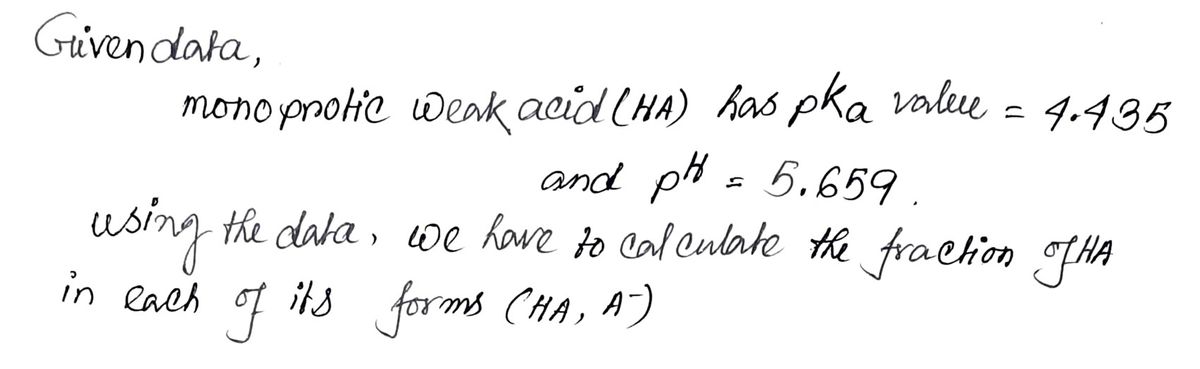 Given data,
monoprotic weak acid (HA) has pka value = 4.435
and pH = 5.659.
using the data, we have to calculate the fraction of HA
in each of its forms (HA, A-)